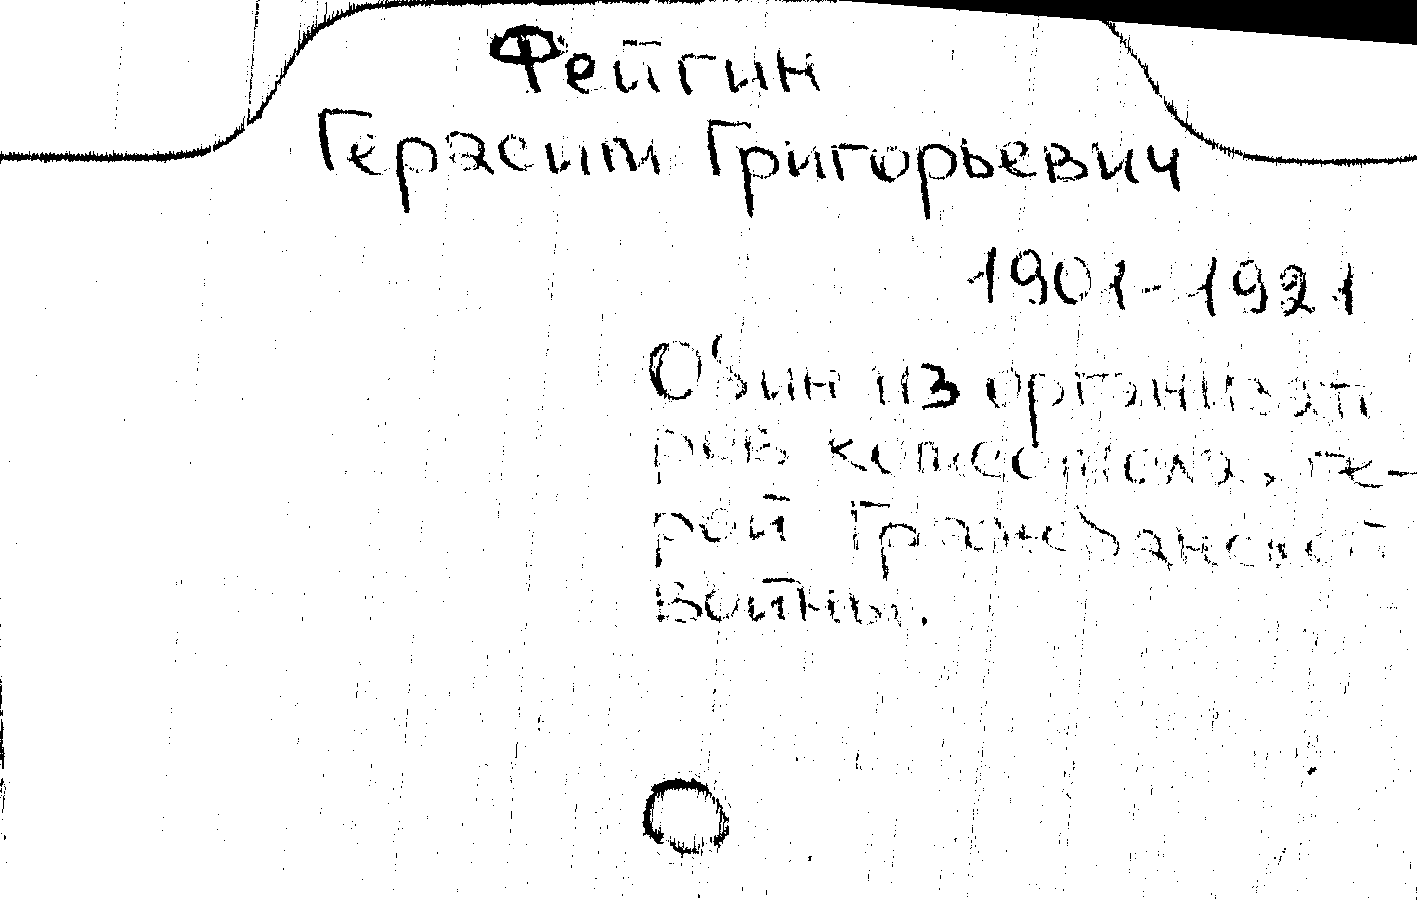 Фейгин
Герасим Григорьевич
1901-1921
Один из организат
ров комсомола, ге-
рой Гражданской
войны.